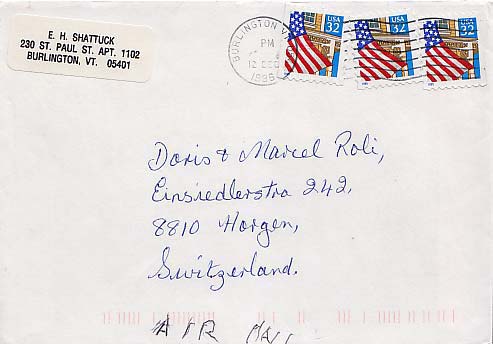 E. H. SHATTUCK
230 ST. PAUL ST. APT. 1102
BURLINGTON, VT. 05401
BURLINGTON V
PM
12 DEC
1996
USA 32
USA 32
USA 32
Doris & Marcel Roli,
Einsiedlerstra 242,
8810 Horgen,
Switzerland.
AIR MAIL